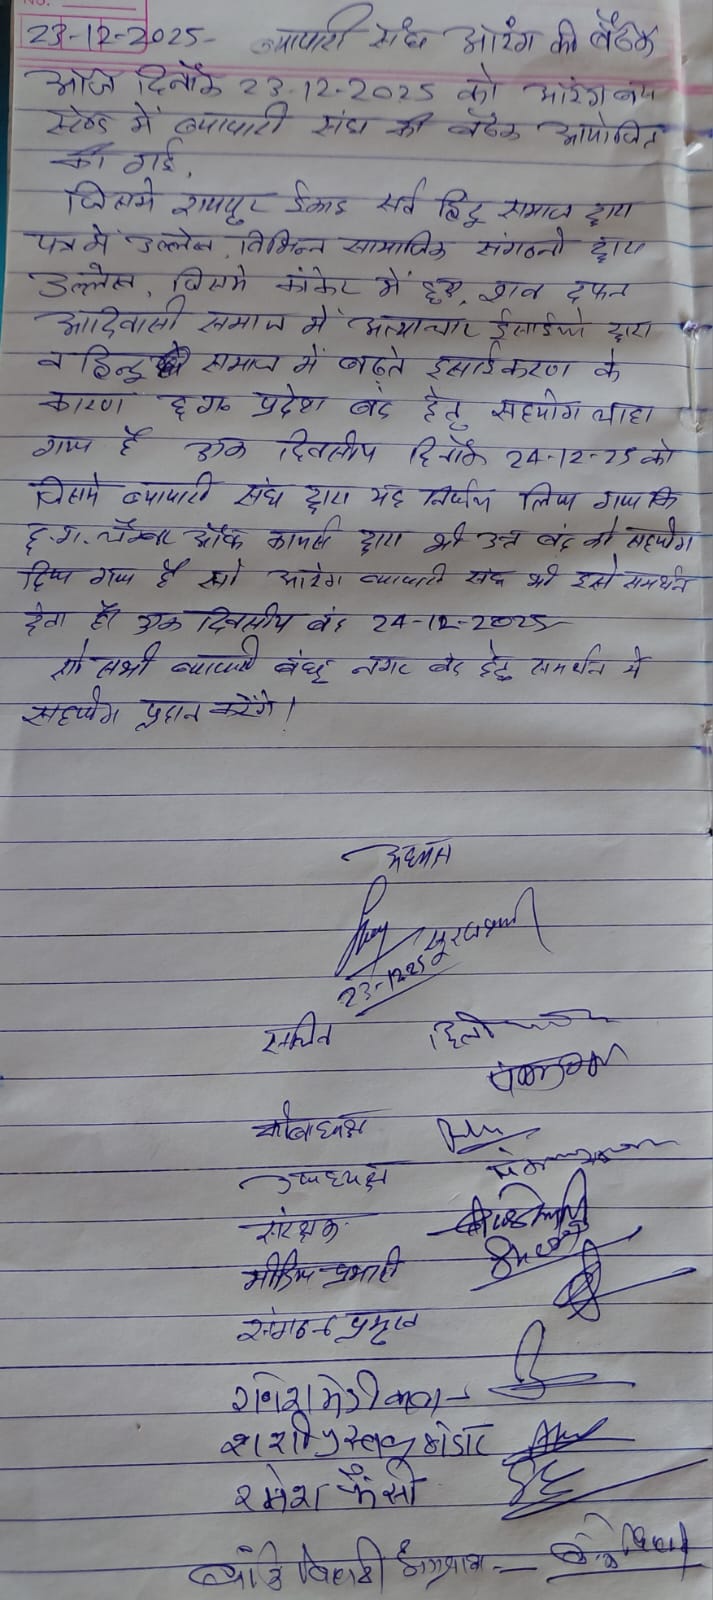 23-12-2025- व्यापारी संघ आरंग की बैठक
आज दिनाँक 23-12-2025 को आरंग बस
स्टेण्ड में व्यापारी संघ की बैठक आयोजित
की गई,
जिसमे रायपुर ईकाई सर्व हिन्दू समाज द्वारा
पत्र में उल्लेख, विभिन्न सामाजिक संगठनो द्वारा
उल्लेख, जिसमे कांकेर में हुए, शव दफन
आदिवासी समाज में अत्याचार ईसाईयो द्वारा
व हिन्दू समाज में बढ़ते ईसाईकरण के
कारण छ ग प्रदेश बंद हेतु सहयोग चाहा
गया है एक दिवसीय दिनाँक 24-12-25 को
जिसमे व्यापारी संघ द्वारा यह निर्णय लिया गया कि
छ.ग. चेम्बर ऑफ कामर्स द्वारा भी उक्त बंद को सहयोग
दिया गया है सो आरंग व्यापारी संघ भी इसे समर्थन
देता है। एक दिवसीय बंद 24-12-2025
सो सभी व्यापारी बंधु नगर बंद हेतु समर्थन में
सहयोग प्रदान करेंगे।
अध्यक्ष
23-12-25
सचिव
कोषाध्यक्ष
उपाध्यक्ष
संरक्षक
मीडिया प्रभारी
संगठन प्रमुख
गणेश मेडीकल
शशी
रमेश फैंसी